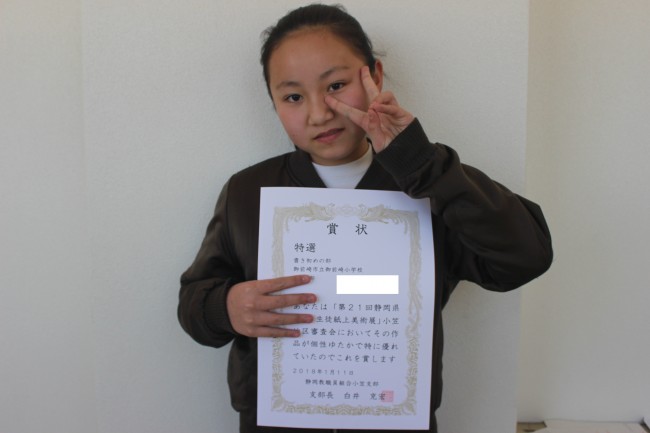 賞状
特選
書き初めの部
御前崎市立御前崎小学校
あなたは「第21回静岡県
生徒紙上美術展」小笠
区審査会においてその作
品が個性ゆたかで特に優れ
ていたのでこれを賞します
2018年1月11日
静岡教職員組合小笠支部
支部長 白井